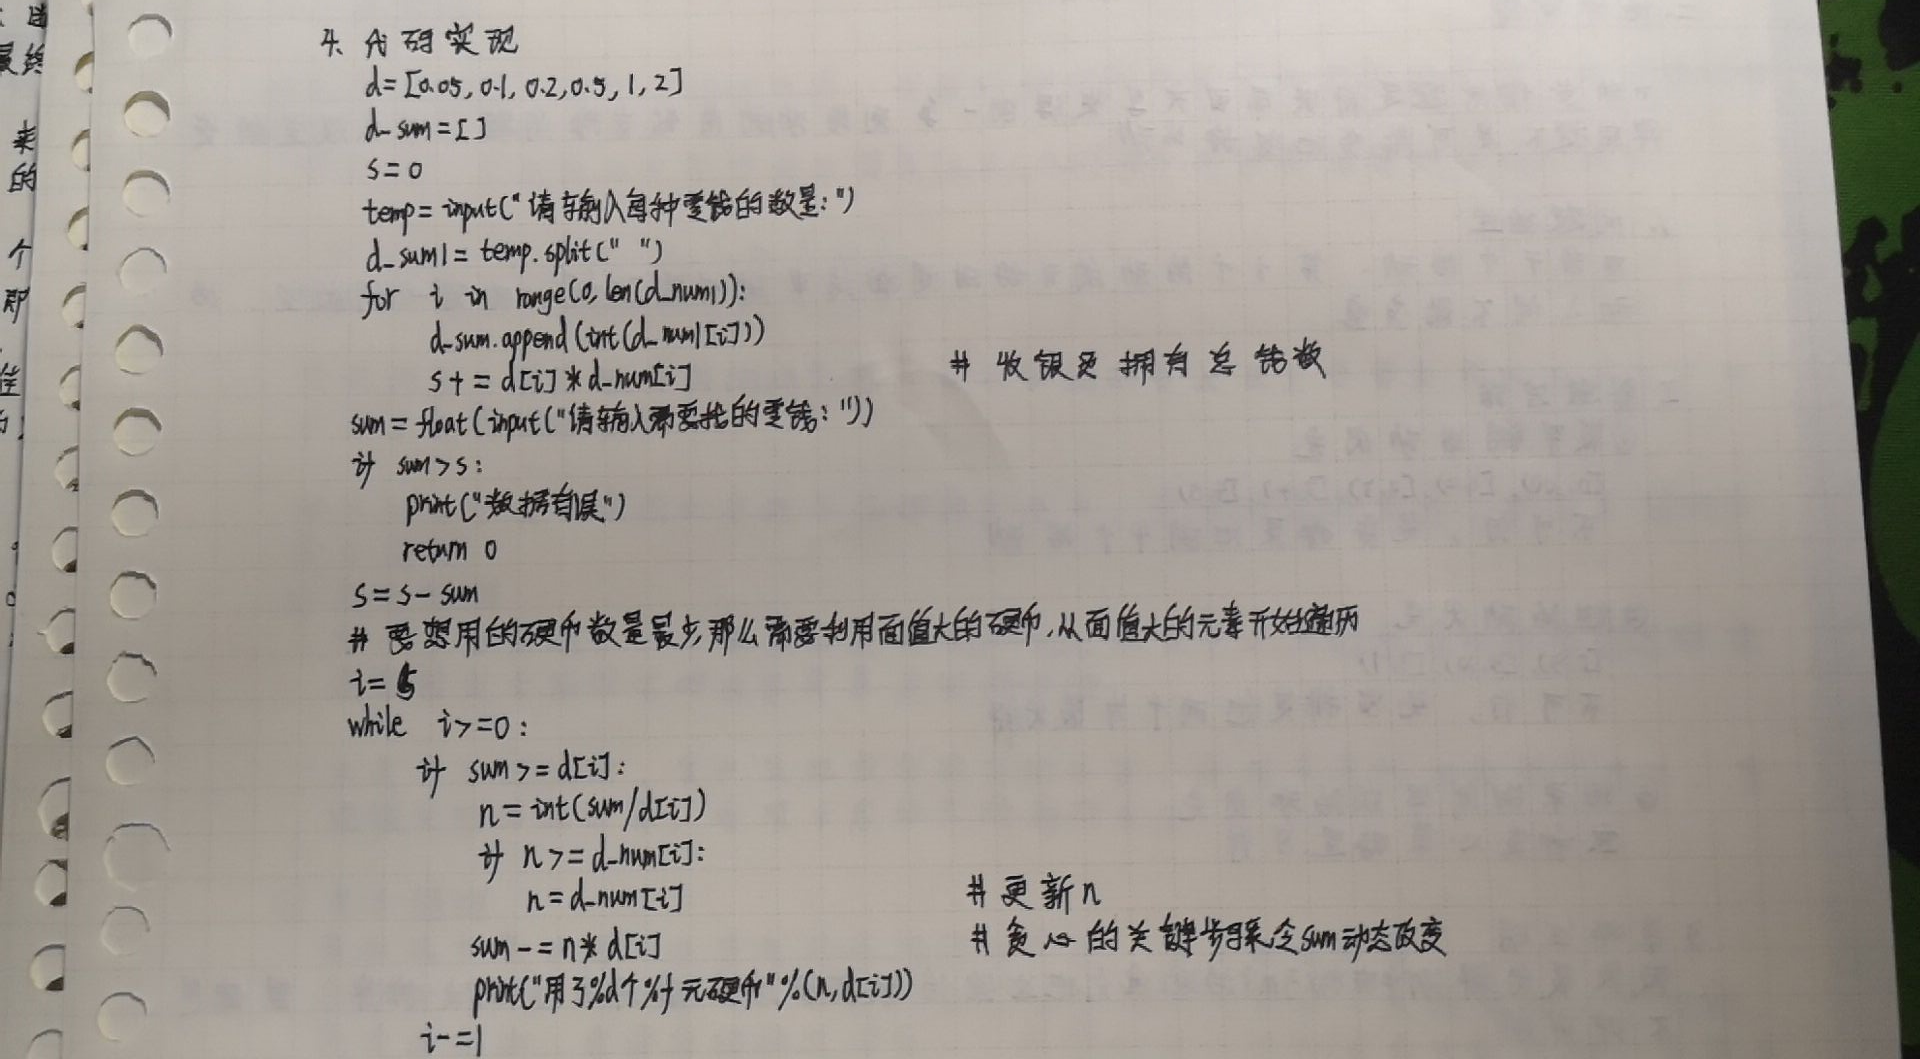 4、代码实现
d=[0.05, 0.1, 0.2, 0.5, 1, 2]
d_sum=[]
s=0
temp=input("请输入每种零钱的数量:")
d_sum1=temp.split(" ")
for i in range(0,len(d_num1)):
d_sum.append(int(d_num1[i]))
s+=d[i]*d_num[i] # 收银员拥有总钱数
sum=float(input("请输入需要找的零钱:"))
if sum>s:
print("数据有误")
return 0
s=s-sum
# 要想用的硬币数量最少,那么需要利用面值大的硬币,从面值大的元素开始遍历
i=5
while i>=0:
if sum>=d[i]:
n=int(sum/d[i])
if n>=d_num[i]:
n=d_num[i] # 更新n
sum-=n*d[i] # 贪心的关键步骤,令sum动态改变
print("用了%d个%f元硬币"%(n,d[i]))
i-=1
来
的
个
即